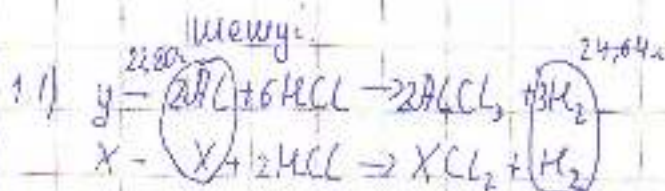 Шешуі:
22,80г 24,64л
1.1) y – 2AL + 6HCL → 2ALCL₃ + 3H₂
X – X + 2HCL → XCL₂ + H₂